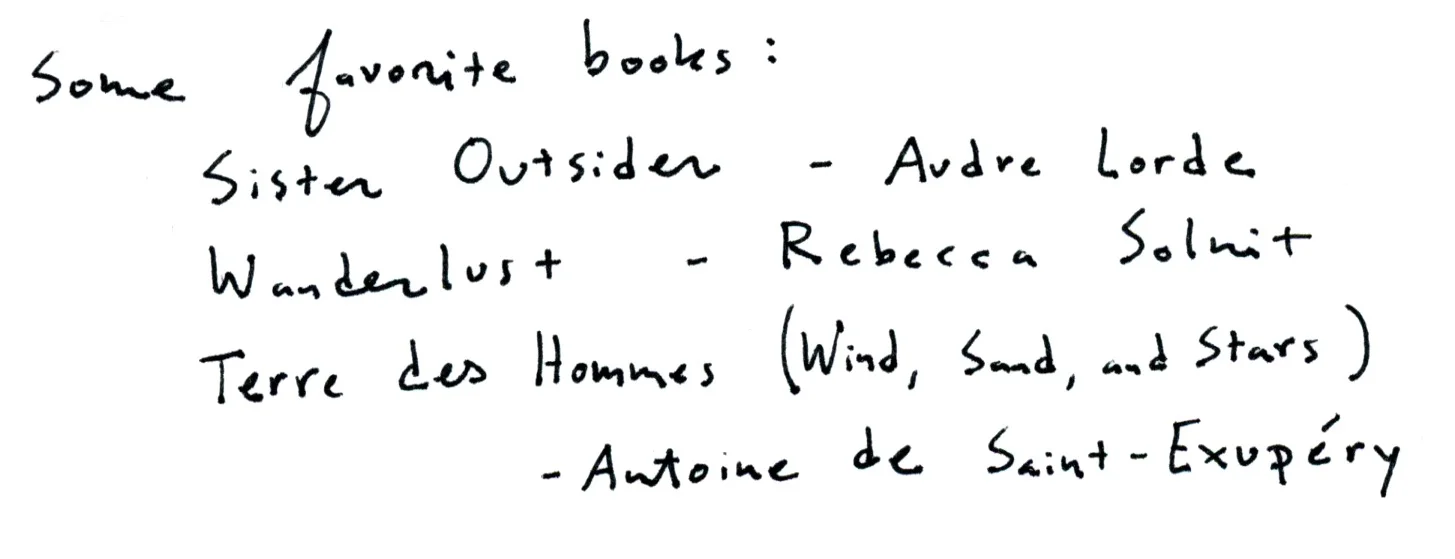 Some favorite books:
Sister Outsider - Audre Lorde
Wanderlust - Rebecca Solnit
Terre des Hommes (Wind, Sand, and Stars)
- Antoine de Saint-Exupéry